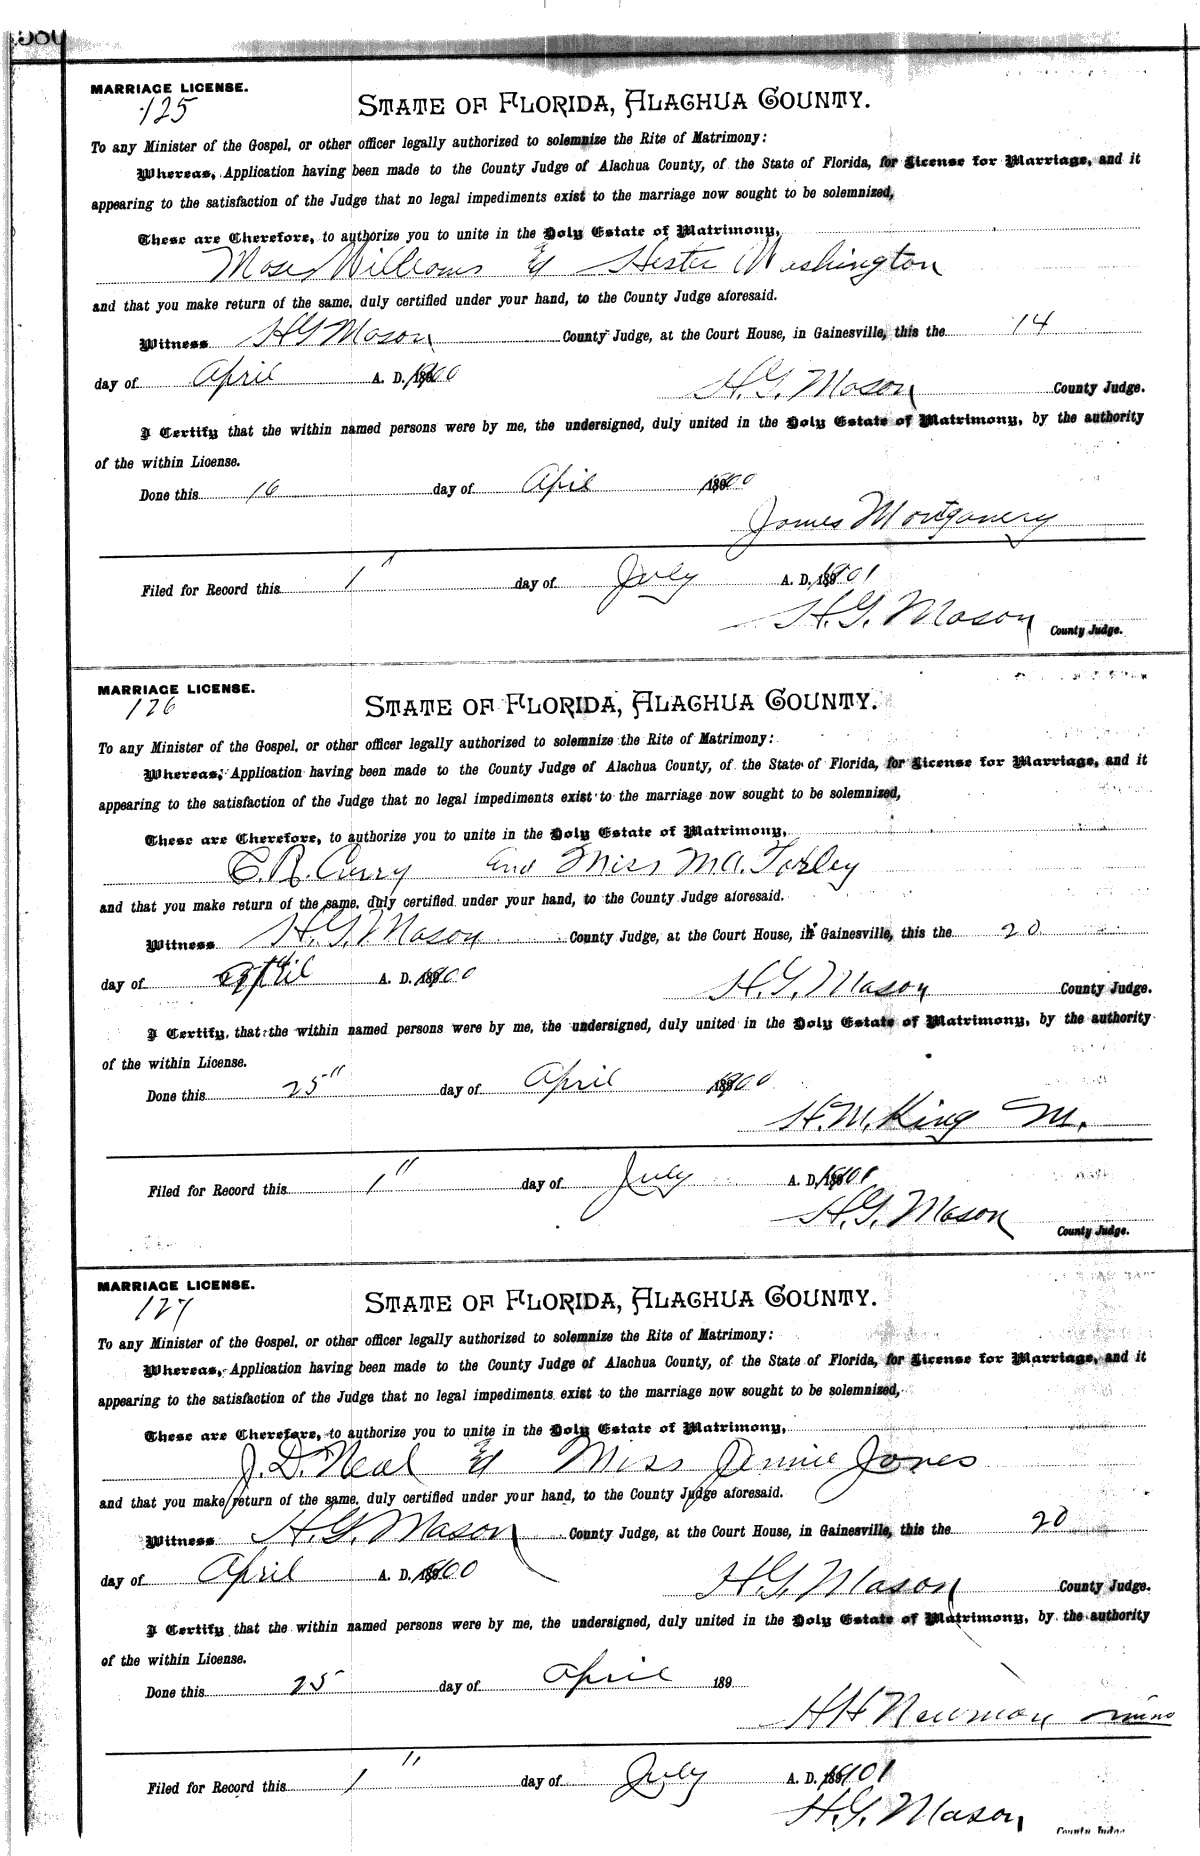 MARRIAGE LICENSE.
125
STATE OF FLORIDA, ALACHUA COUNTY.
To any Minister of the Gospel, or other officer legally authorized to solemnize the Rite of Matrimony:
Whereas, Application having been made to the County Judge of Alachua County, of the State of Florida, for License for Marriage, and it
appearing to the satisfaction of the Judge that no legal impediments exist to the marriage now sought to be solemnized,
These are Therefore, to authorize you to unite in the Holy Estate of Matrimony,
Moses Williams & Hester Washington
and that you make return of the same, duly certified under your hand, to the County Judge aforesaid.
Witness H G Mason County Judge, at the Court House, in Gainesville, this the 14
day of April A. D. 1900
H. G. Mason County Judge.
I Certify that the within named persons were by me, the undersigned, duly united in the Holy Estate of Matrimony, by the authority
of the within License.
Done this 16 day of April 1900
James Montgomery
Filed for Record this 1" day of July A. D. 1901
H. G. Mason
County Judge.
MARRIAGE LICENSE.
126
STATE OF FLORIDA, ALACHUA COUNTY.
To any Minister of the Gospel, or other officer legally authorized to solemnize the Rite of Matrimony:
Whereas, Application having been made to the County Judge of Alachua County, of the State of Florida, for License for Marriage, and it
appearing to the satisfaction of the Judge that no legal impediments exist to the marriage now sought to be solemnized,
These are Therefore, to authorize you to unite in the Holy Estate of Matrimony,
C. R. Curry and Miss M A.
and that you make return of the same, duly certified under your hand, to the County Judge aforesaid.
Witness H. G. Mason County Judge, at the Court House, in Gainesville, this the 20
day of April A. D. 1900
H. G. Mason County Judge.
I Certify, that the within named persons were by me, the undersigned, duly united in the Holy Estate of Matrimony, by the authority
of the within License.
Done this 25" day of April 1900
H. M. King M.
Filed for Record this 1" day of July A. D. 1901
H. G. Mason
County Judge.
MARRIAGE LICENSE.
127
STATE OF FLORIDA, ALACHUA COUNTY.
To any Minister of the Gospel, or other officer legally authorized to solemnize the Rite of Matrimony:
Whereas, Application having been made to the County Judge of Alachua County, of the State of Florida, for License for Marriage, and it
appearing to the satisfaction of the Judge that no legal impediments exist to the marriage now sought to be solemnized,
These are Therefore, to authorize you to unite in the Holy Estate of Matrimony,
J. D. Neal & Miss Jennie Jones
and that you make return of the same, duly certified under your hand, to the County Judge aforesaid.
Witness H. G. Mason County Judge, at the Court House, in Gainesville, this the 20
day of April A. D. 1900
H. G. Mason County Judge.
I Certify that the within named persons were by me, the undersigned, duly united in the Holy Estate of Matrimony, by the authority
of the within License.
Done this 25 day of April 189
H H Newman
Filed for Record this 1" day of July A. D. 1901
H. G. Mason
County Judge.